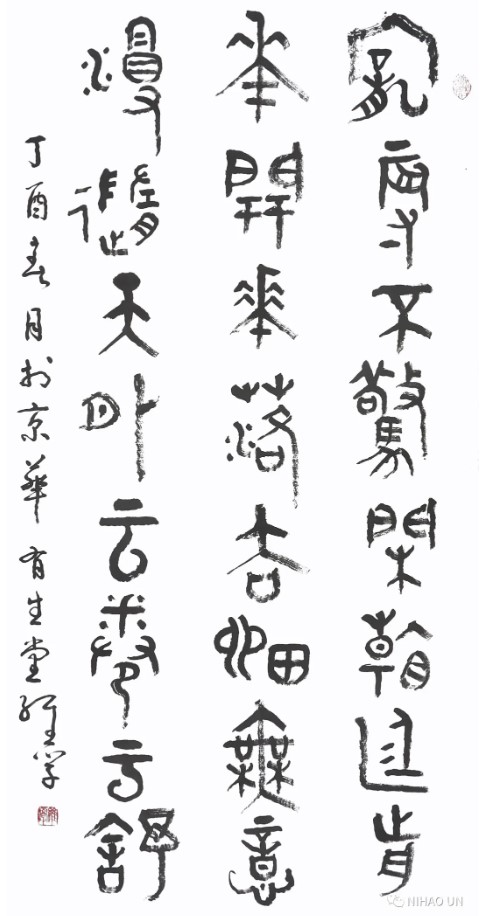 寵辱不驚閑看庭前
華開華落去留無意
漫隨天外云卷云舒
丁酉春月於京華有生堂
NIHAO UN